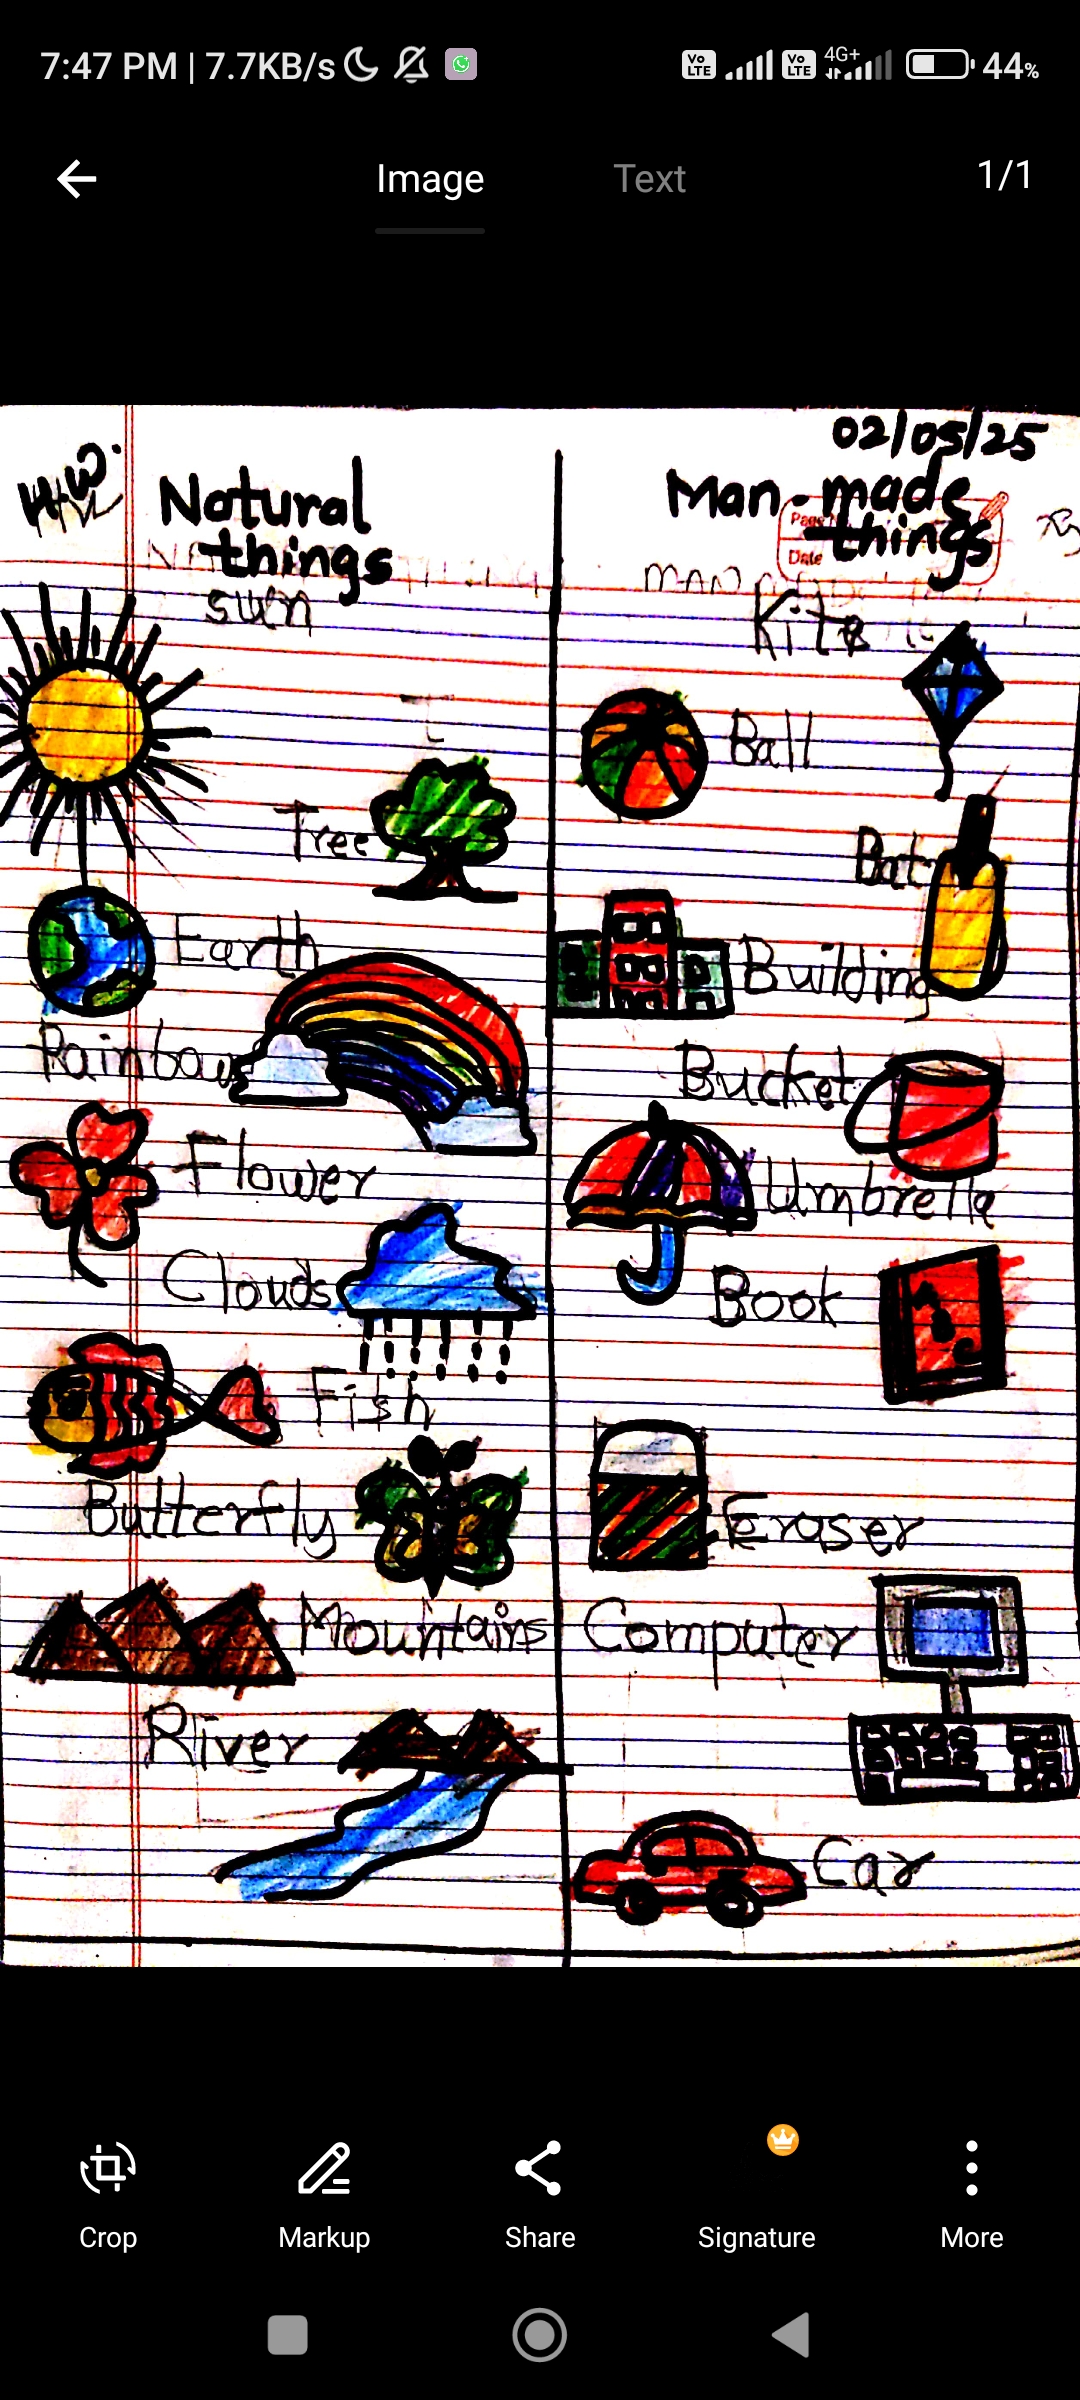 7:47 PM | 7.7KB/s
Vo LTE
Vo LTE
4G+
44%
Image
Text
1/1
02/05/25
H.W.
Natural
things
Man-made
things
Page No.
Date
sun
Kite
Ball
Tree
Bat
Earth
Building
Rainbow
Bucket
Flower
Umbrella
Clouds
Book
Fish
Butterfly
Eraser
Mountains
Computer
River
Car
Crop
Markup
Share
Signature
More